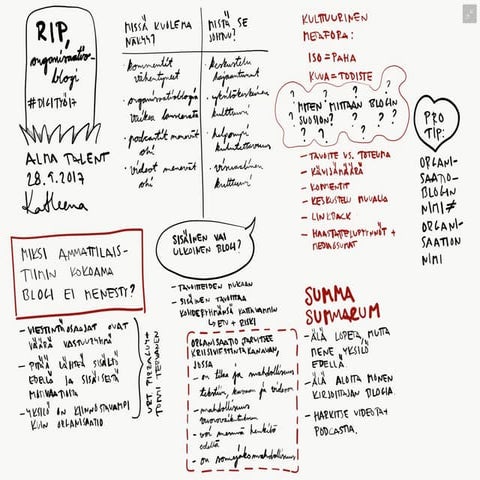 RIP,
organisaatio-
blogi
#DIGITYÖT
ALMA TALENT
28.9.2017
Katleena
MISSÄ KUOLEMA
NÄKYY?
· kommentit
vähentyneet
· organisaatioblogia
vaikea
· podcastit menevät
ohi
· videot menevät
ohi
MISTÄ SE
JOHTUU?
· keskustelu
hajaantunut
· yksilökeskeinen
kulttuuri
· helpompi
kulutettavuus
· visuaalinen
kulttuuri
KULTTUURINEN
METAFORA:
ISO = PAHA
KUVA = TODISTE
? ? ?
? MITEN MITATAAN BLOGIN
SUOSIO? ? ? ?
? ? ? ?
- TAVOITE VS. TOTEUMA
- KÄVIJÄMÄÄRÄ
- KOMMENTIT
- KESKUSTELU MUUALLA
- LINKBACK
- HAASTATTELUPYYNNÖT +
MEDIAOSUMAT
PRO
TIP:
ORGANI-
SAATIO-
BLOGIN
NIMI ≠
ORGANI-
SAATION
NIMI
MIKSI AMMATTILAIS-
TIIMIN KOKOAMA
BLOGI EI MENESTY?
- VIESTINTÄOSAAJAT OVAT
VÄÄRÄ VASTUURYHMÄ
- PITÄÄ LÄHTEÄ SISÄLTÖ
EDELLÄ JA SISÄISESTÄ
MOTIVAATIOSTA
- YKSILÖ ON KIINNOSTAVAMPI
KUIN ORGANISAATIO
VRT. PIRKALUVT
TOMI TERVANEN
SISÄINEN VAI
ULKOINEN BLOGI?
- TAVOITTEIDEN MUKAAN
- SISÄINEN TAVOITTAA
KOHDERYHMÄNSÄ KATTAVAMMIN
↳ ETU + RISKI
ORGANISAATIO TARVITSEE
KRIISIVIESTINTÄKANAVAN,
JOSSA
- on tilaa ja mahdollisuus
tekstiin, kuvaan ja videoon
- mahdollisuus
vuorovaikutukseen
- voi mennä henkilö
edellä
- on somejakomahdollisuus
SUMMA
SUMMARUM
- ÄLÄ LOPETA, MUTTA
MENE YKSILÖ
EDELLÄ.
- ÄLÄ ALOITA MONEN
KIRJOITTAJAN BLOGIA.
- HARKITSE VIDEOTA +
PODCASTIA.